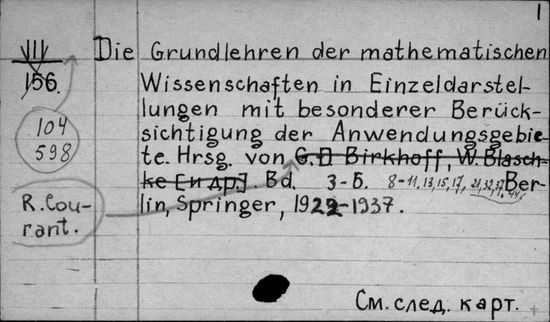 1
VII
156.
104
598
R. Cou-
rant.
Die Grundlehren der mathematischen
Wissenschaften in Einzeldarstel-
lungen mit besonderer Berück-
sichtigung der Anwendungsgebie-
te. Hrsg. von G. D Birkhoff, W. Blasch-
ke [и др.]. Bd. 3-5. 8-11, 13, 15, 17, 21, 32, 37, 44. Ber-
lin, Springer, 1922-1937.
См. след. карт.